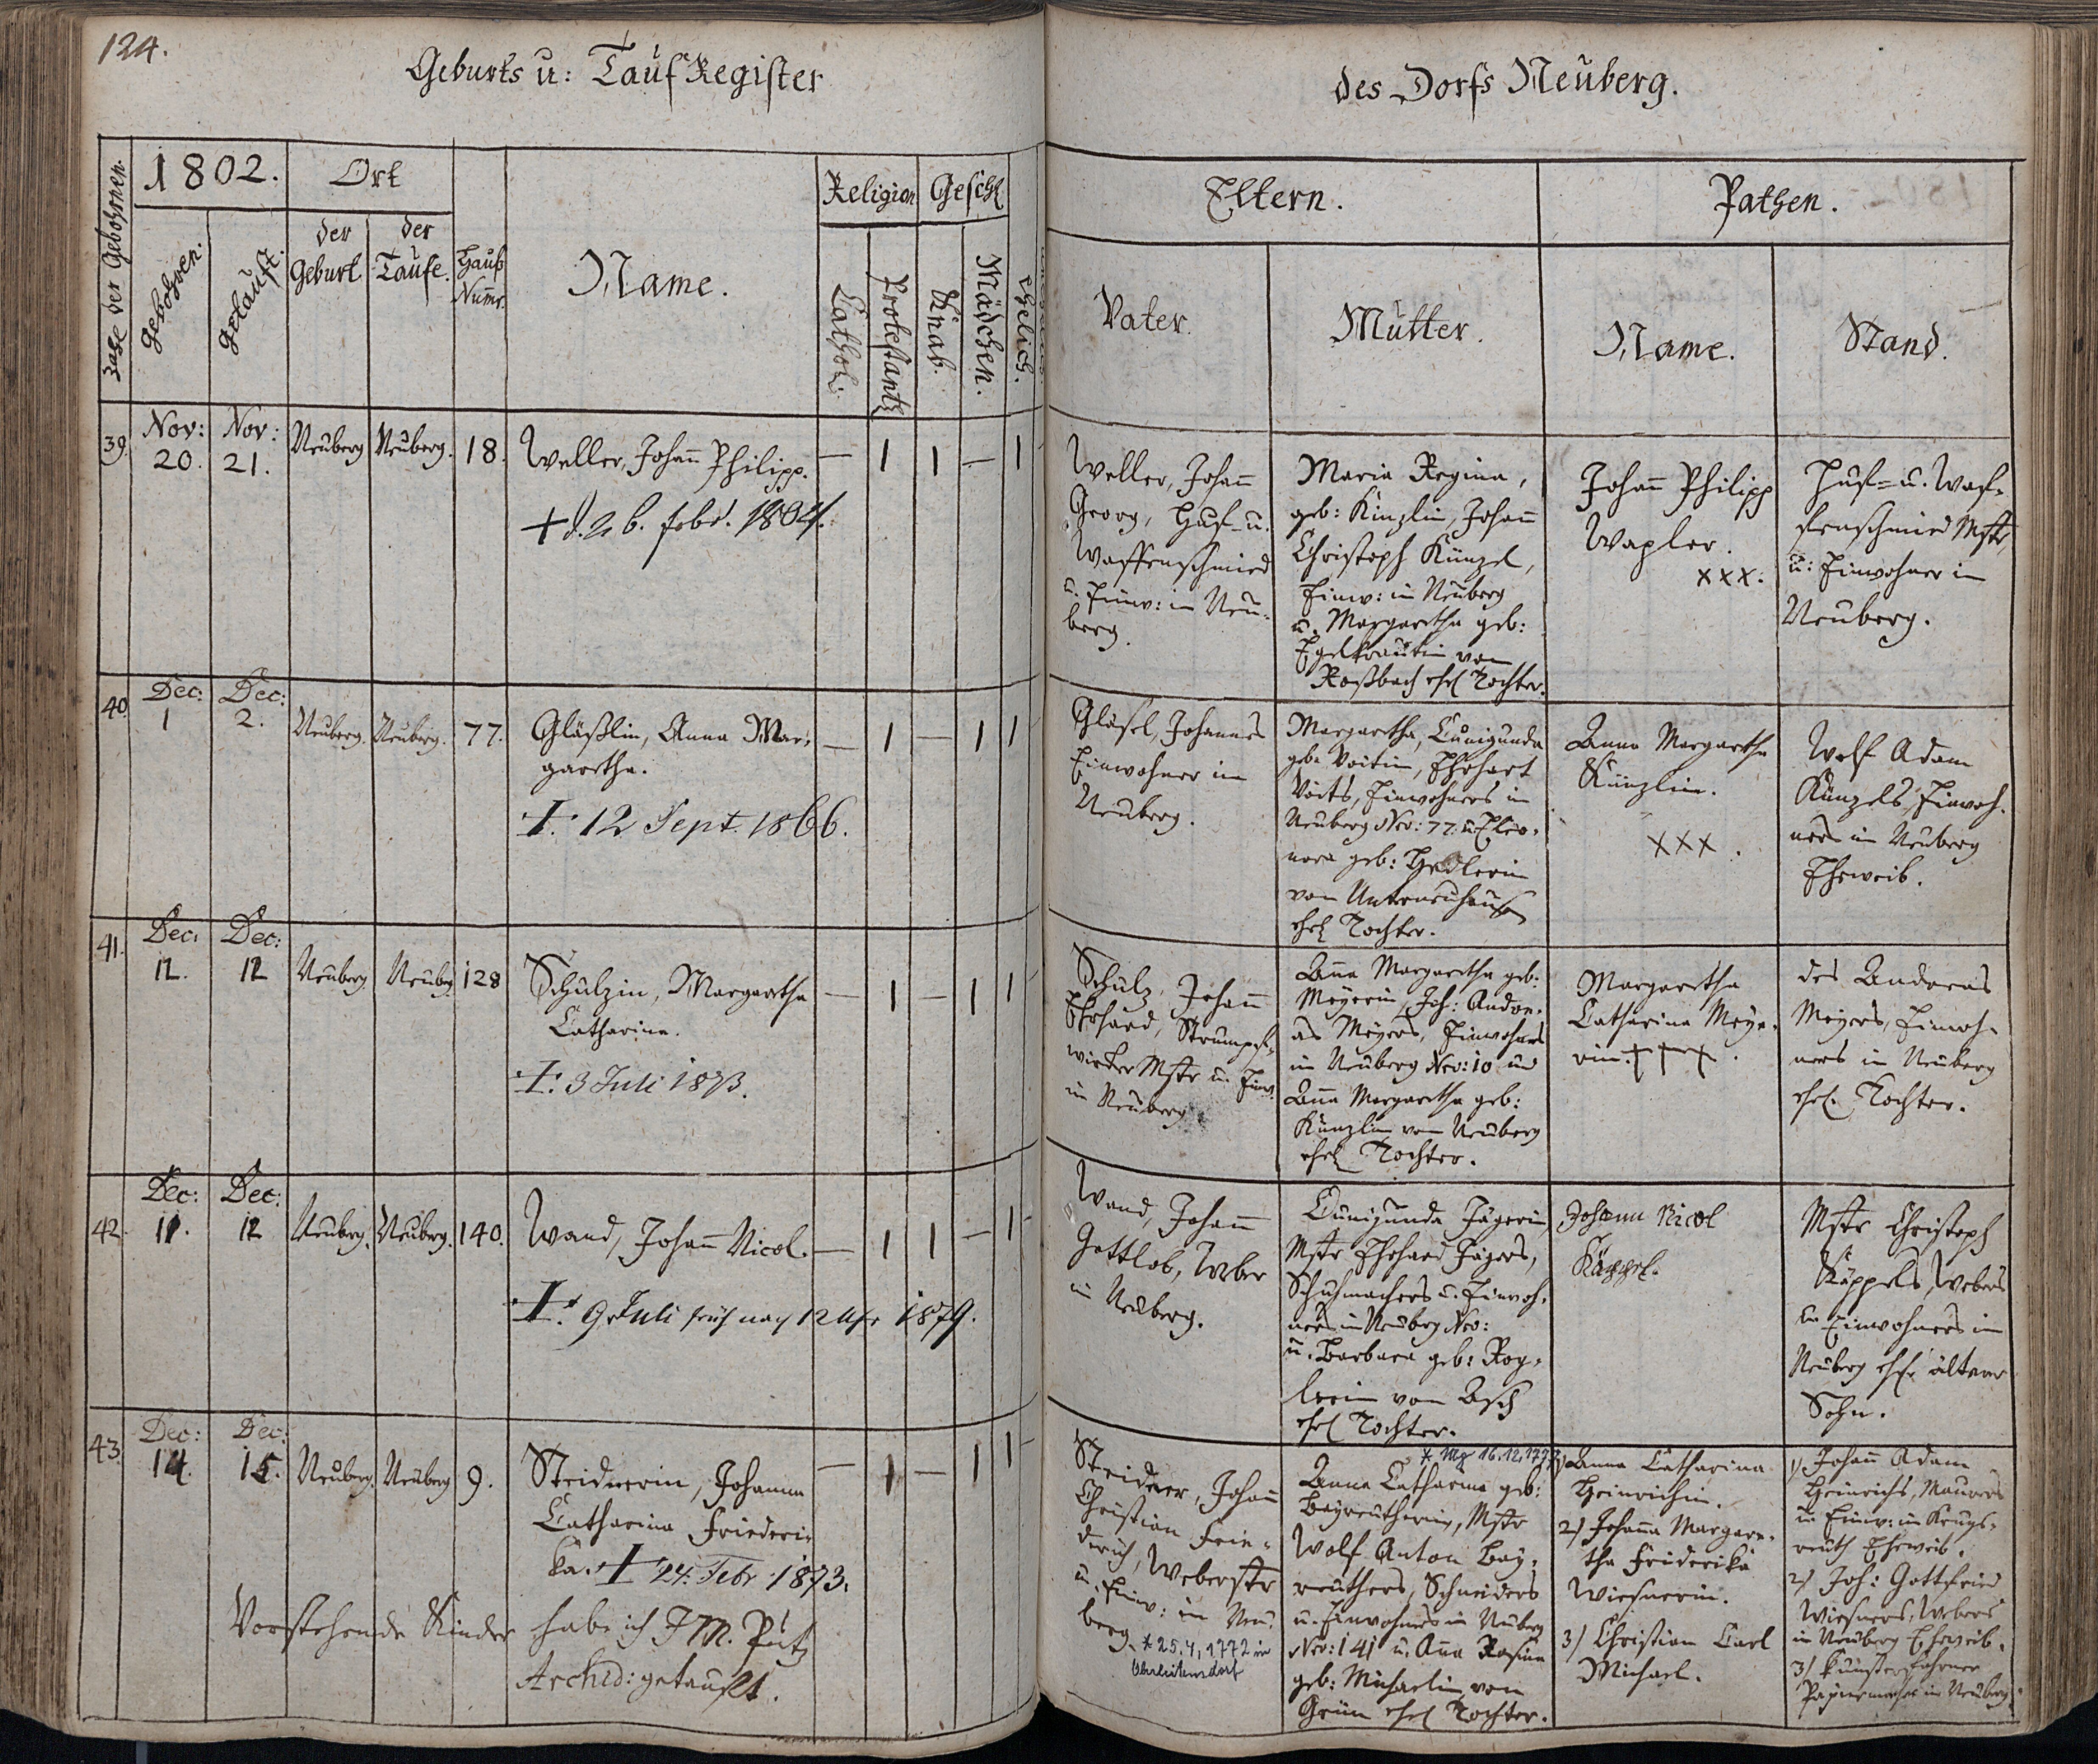 124.
Geburts u: Tauf Register
des Dorfs Neuberg.
Zahl der Gebohrnen.
1802.
Ort
gebohren.
getauft.
der Geburt
der Taufe.
Hauß Numr.
Name.
Religion
Cathol.
Protestant
Geschl
Knab.
Mädchen.
Ehelich.
Eltern.
Vater.
Mutter.
Pathen.
Name.
Stand.
39. Nov: 20. Nov: 21. Neuberg Neuberg. 18.
Weller, Johann Philipp. — 1 1 — 1
+ d. 26. febr. 1804.
Weller, Johann
Georg, Huf- u.
Waffenschmied
u. Einw: in Neu-
berg.
Maria Regina,
geb: Künzlin, Johann
Christoph Künzel,
Einw: in Neuberg
u. Margaretha geb:
Egelkrautin von
Roßbach ehl Tochter.
Johann Philipp
Wapler.
xxx.
Huf- u. Waf-
fenschmied Mstr
u: Einwohner in
Neuberg.
40. Dec: 1 Dec: 2. Neuberg. Neuberg. 77.
Gläßlin, Anna Mar- — 1 — 1 1
garetha.
+ 12 Sept. 1866.
Gläsel, Johannes
Einwohner in
Neuberg.
Margaretha, Cunigunda
geb. Voitin, Ehrhart
Voits, Einwohners in
Neuberg Nro: 77. u. Eleo-
nora geb:
von
ehl Tochter.
Anna Margaretha
Künzlin.
xxx.
Wolf Adam
Künzels, Einwoh-
ners in Neuberg
Eheweib.
41. Dec: 12. Dec: 12 Neuberg Neubeg 128
Schulzin, Margaretha — 1 — 1 1
Catharina.
+ 3 Juli 1873.
Schulz, Johann
Ehrhard, Strumpf-
wirker Mstr u. Einw.
in Neuberg
Anna Margaretha geb:
Meyerin, Joh: Andre-
as Meyers, Einwohners
in Neuberg Nro: 10 und
Anna Margaretha geb:
Künzlin von Neuberg
ehl Tochter.
Margaretha
Catharina Meye-
rin. +++.
des Andreas
Meyers, Einwoh-
ners in Neuberg
ehl. Tochter.
42. Dec: 11. Dec: 12 Neuberg. Neuberg. 140.
Wand, Johann Nicol. — 1 1 — 1
+ 9. Juli früh nach 12 Uhr 1879.
Wand, Johann
Gottlob, Weber
in Neuberg.
Cunigunda Jägerin,
Mstr Ehrhard Jägers,
Schuhmachers u. Einwoh-
ners in Neuberg Nro:
u. Barbara geb: Rog-
lerin von Asch
ehl Tochter.
Johann Nicol
Käppel.
Mstr Christoph
Käppels, Webers
u. Einwohners in
Neuberg ehl. ältester
Sohn.
43. Dec: 14. Dec: 15. Neuberg. Neuberg 9.
Steidnerin, Johanna — 1 — 1 1
Catharina Friederi-
ka. + 24. Febr 1873.
Steidner, Johann
Christian Frie-
derich, Weberstr
u. Einw: in Neu-
berg. * 25.4.1772 in
* Ng 16.12.1777
Anna Catharina geb:
Bayreutherin, Mstr
Wolf Anton Bay-
reuthers, Schneiders
u. Einwohners in Neuberg
Nro: 141 u. Anna Rosina
geb: Michaelin von
Grün ehl Tochter.
1) Anna Catharina
Heinrichin.
2) Johanna Margare-
tha Friderika
Wiesnerin.
3) Christian Carl
Michael.
1) Johann Adam
Heinrichs, Maurers
u. Einw: in Krugs-
reuth Eheweib.
2) Joh: Gottfried
Wiesners, Webers
in Neuberg Eheweib.
3)
Papiermacher in Neuberg.
Vorstehende Kinder habe ich J M. Putz
Archid: getauft.